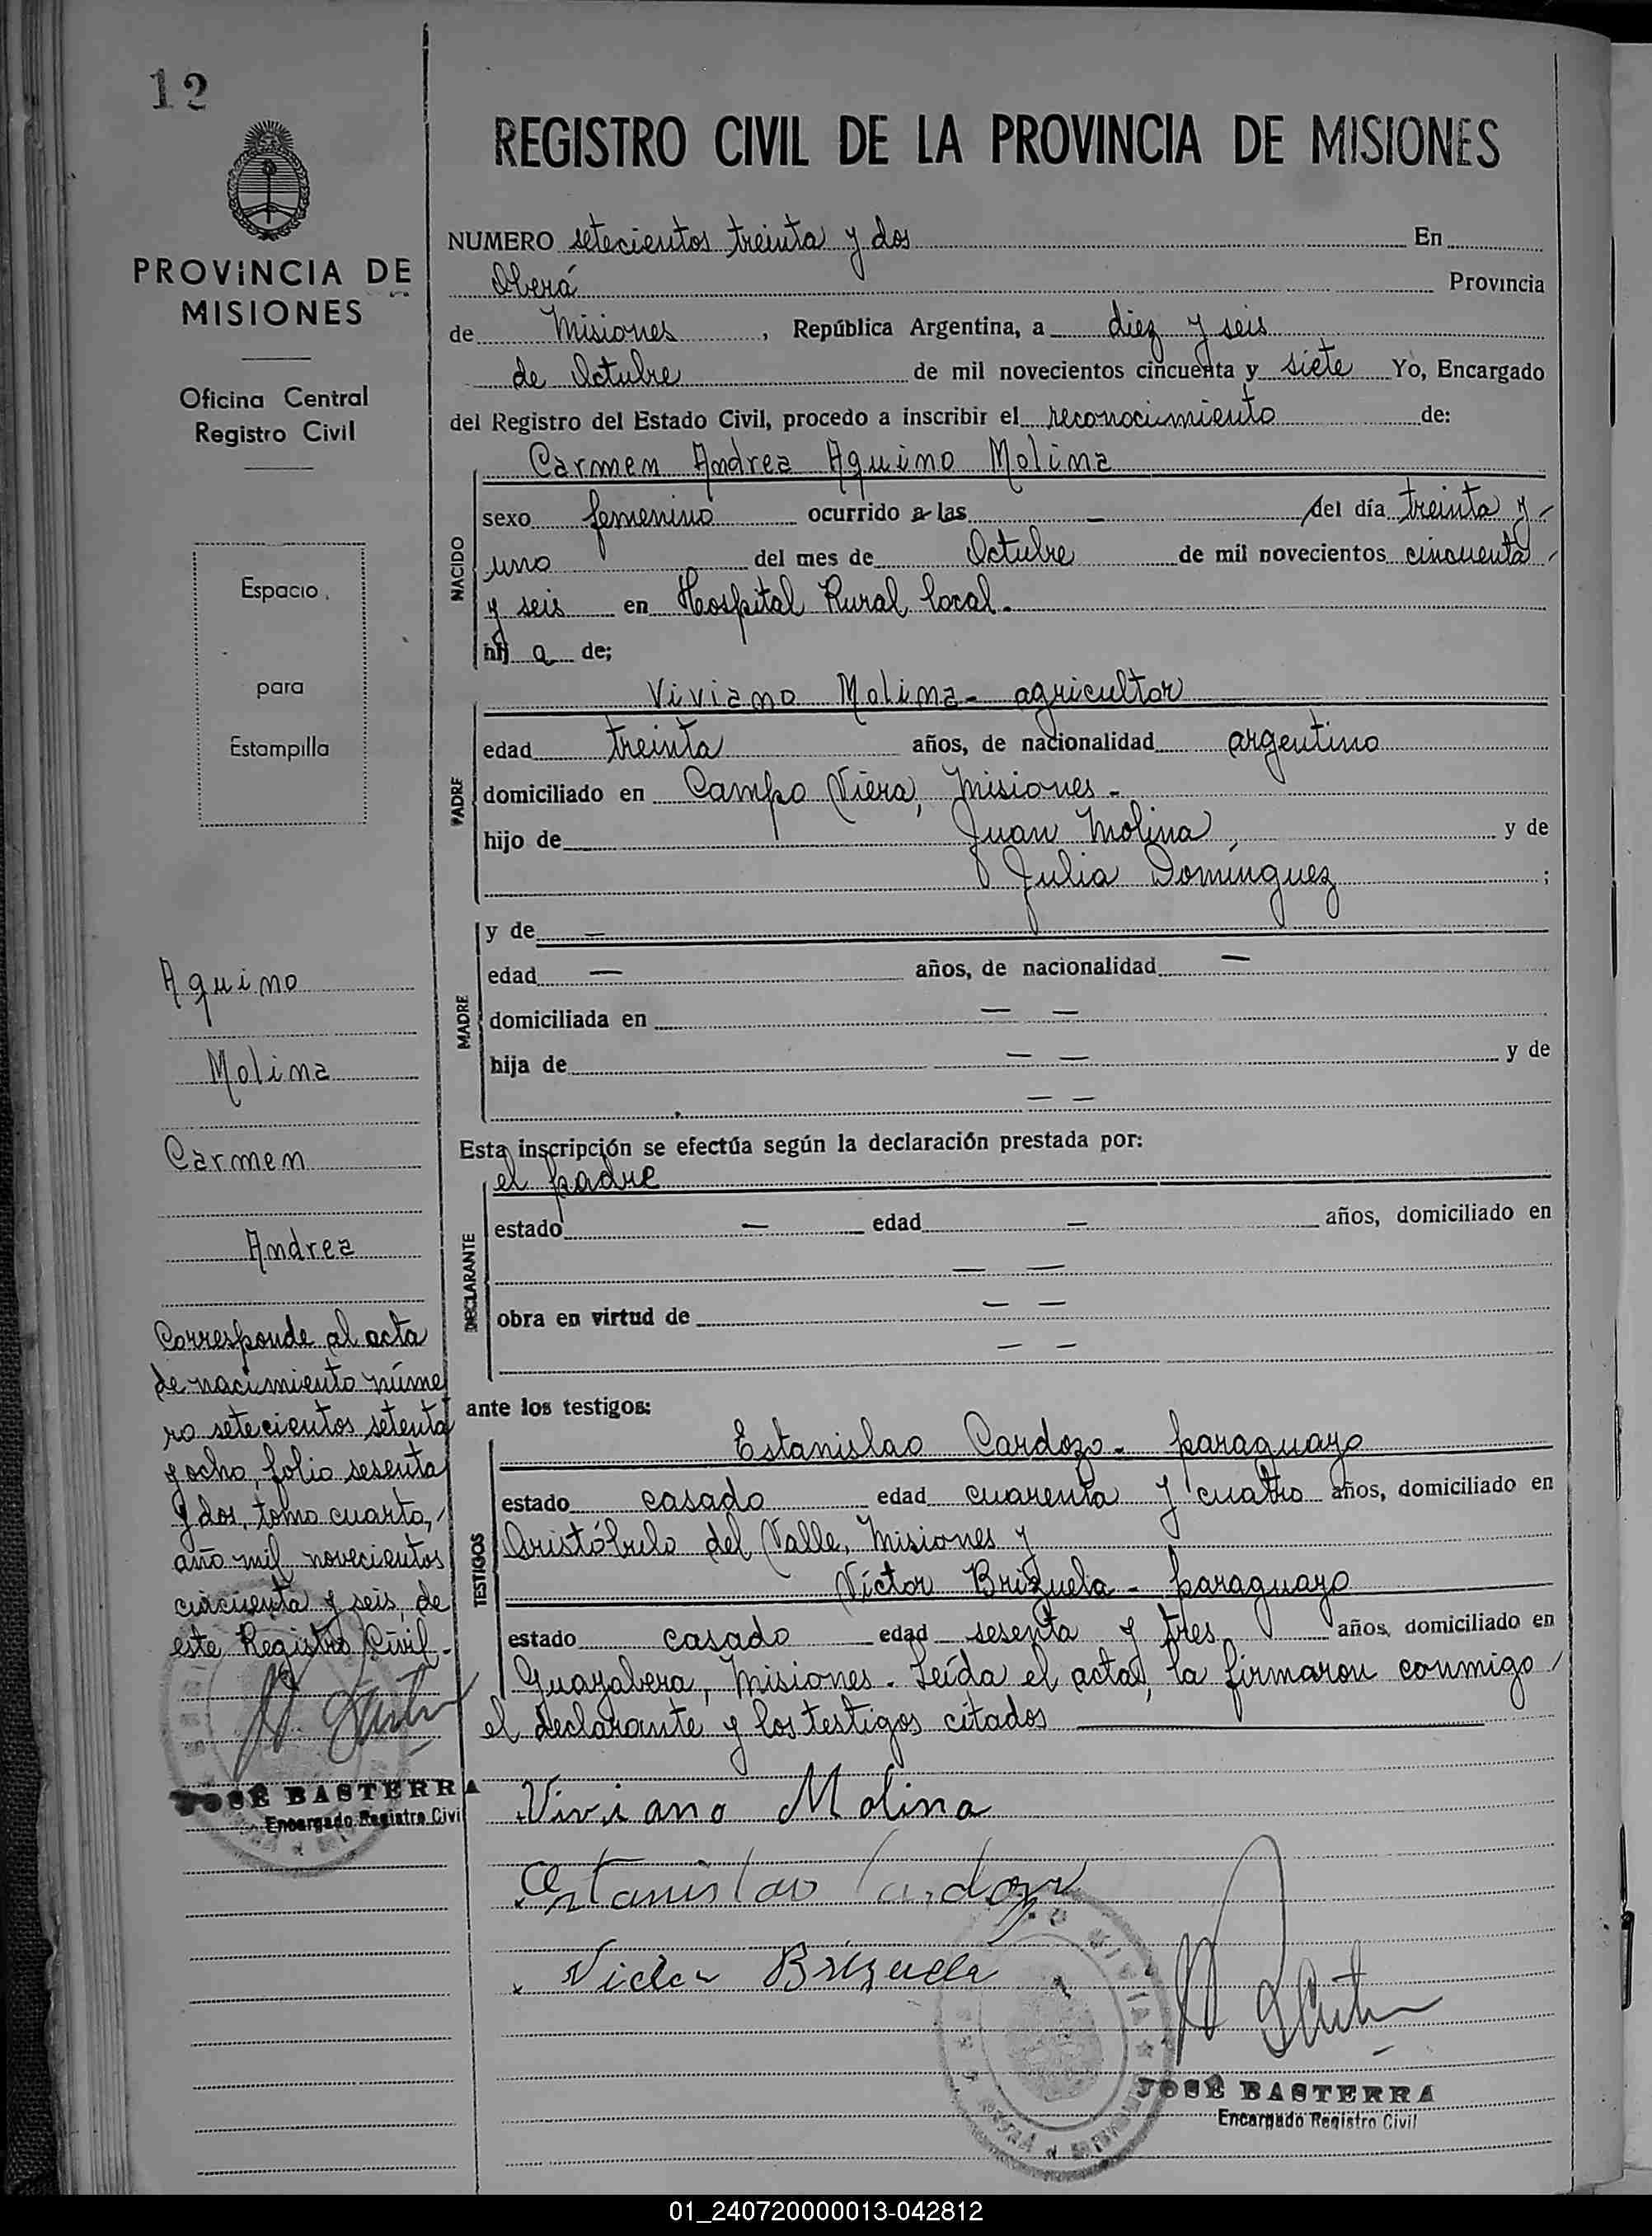 12
PROVINCIA DE
MISIONES
Oficina Central
Registro Civil
Espacio
para
Estampilla
Aquino
Molina
Carmen
Andrea
Corresponde al acta
de nacimiento núme
ro setecientos setenta
y ocho, folio sesenta
y dos, tomo cuarto,
año mil novecientos
cincuenta y seis, de
este Registro Civil.
JOSÉ BASTERRA
Encargado Registro Civil
REGISTRO CIVIL DE LA PROVINCIA DE MISIONES
NUMERO setecientos treinta y dos En
Oberá Provincia
de Misiones, República Argentina, a diez y seis
de Octubre de mil novecientos cincuenta y siete Yo, Encargado
del Registro del Estado Civil, procedo a inscribir el reconocimiento de:
Carmen Andrea Aquino Molina
NACIDO
sexo femenino ocurrido a las — del día treinta y
uno del mes de Octubre de mil novecientos cincuenta
y seis en Hospital Rural local.
hij a de;
Viviano Molina - agricultor
PADRE
edad treinta años, de nacionalidad argentino
domiciliado en Campo Viera, Misiones -
hijo de Juan Molina y de
Julia Domínguez ;
MADRE
y de —
edad — años, de nacionalidad —
domiciliada en — —
hija de — — y de
— —
Esta inscripción se efectúa según la declaración prestada por:
el padre
DECLARANTE
estado — edad — años, domiciliado en
— —
obra en virtud de — —
— —
ante los testigos:
Estanislao Cardozo - paraguayo
TESTIGOS
estado casado edad cuarenta y cuatro años, domiciliado en
Aristóbulo del Valle, Misiones y
Víctor Brizuela - paraguayo
estado casado edad sesenta y tres años, domiciliado en
Guayabera, Misiones. Leída el acta, la firmaron conmigo
el declarante y los testigos citados
Viviano Molina
Estanislao Cardozo
Victor Brizuela
JOSÉ BASTERRA
Encargado Registro Civil
01_240720000013-042812